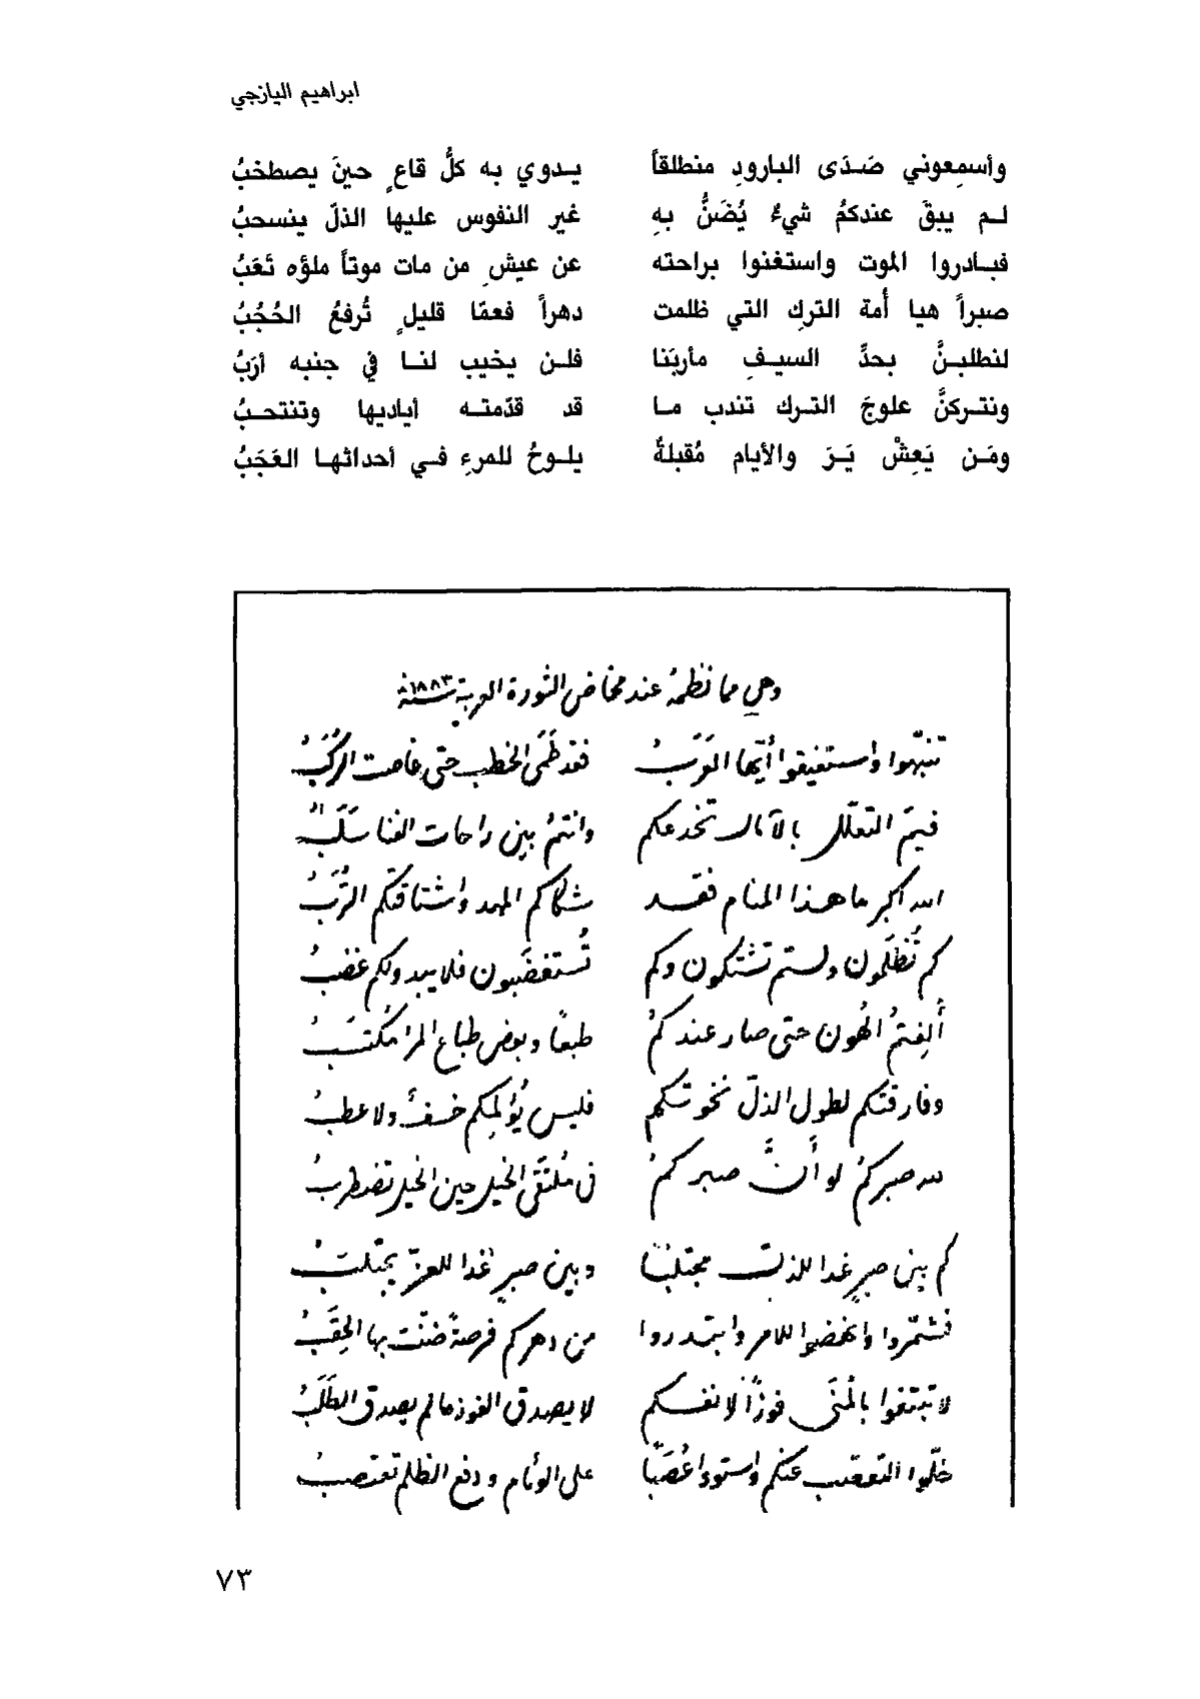 ابراهيم اليازجي
وأسمِعوني صَدَى البارودِ منطلقاً يدوي به كلُّ قاعٍ حينَ يصطخبُ
لم يبقَ عندكمُ شيءٌ يُضَنُّ بهِ غير النفوس عليها الذلّ ينسحبُ
فبادروا الموت واستغنوا براحته عن عيشِ من مات موتاً ملؤه تَعَبُ
صبراً هيا أُمة التركِ التي ظلمت دهراً فعمّا قليلٍ تُرفعُ الحُجُبُ
لنطلبنَّ بحدِّ السيفِ مأربَنا فلن يخيب لنا في جنبه أرَبُ
ونتركنَّ علوجَ الترك تندب ما قد قدّمته أياديها وتنتحبُ
ومَن يَعِشْ يَرَ والأيام مُقبلةٌ يلوحُ للمرءِ في أحداثها العَجَبُ
وهي مما نظمهُ عند مخاض الثورة العربية سنة ١٨٨٣
تنبّهوا واستفيقوا أيّها العَرَبُ فقد طَمَى الخطب حتى غاصت الرُّكَبُ
فيمَ التعلّل بالآمال تخدعكم وانتمُ بين راحات الفنا سَلَبُ
الله اكبر ما هذا المنام فقد شكاكم المهد واشتاقتكم التُّرَبُ
كم تُظلَمون ولستم تشتكون وكم تُستغضَبون فلا يبدو لكم غضبُ
أَلِفتمُ الهُون حتى صار عندكمُ طبعًا وبعض طباع المرء مكتسَبُ
وفارقتكم لطول الذلّ نخوتكم فليس يُؤلمكم خسفٌ ولا عطبُ
لله صبركمُ لو أنَّ صبركمُ في مُلتقَى الخيل حين الخيل تضطربُ
كم بين صبرٍ غدا للذلّ مجتلبًا وبين صبرٍ غدا للعزّ يجتلبُ
فشمّروا وانهضوا للامر وابتدروا من دهركم فرصةً ضنّت بها الحِقَبُ
لا تبتغوا بالمُنَى فوزًا لانفسكم لا يصدق الفوز ما لم يصدق الطَلَبُ
خلّوا التعصّب عنكم واستووا عُصَبًا على الوئام ودفع الظلم تعتصبُ
٧٣